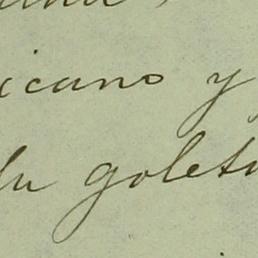 icano y
la goleta